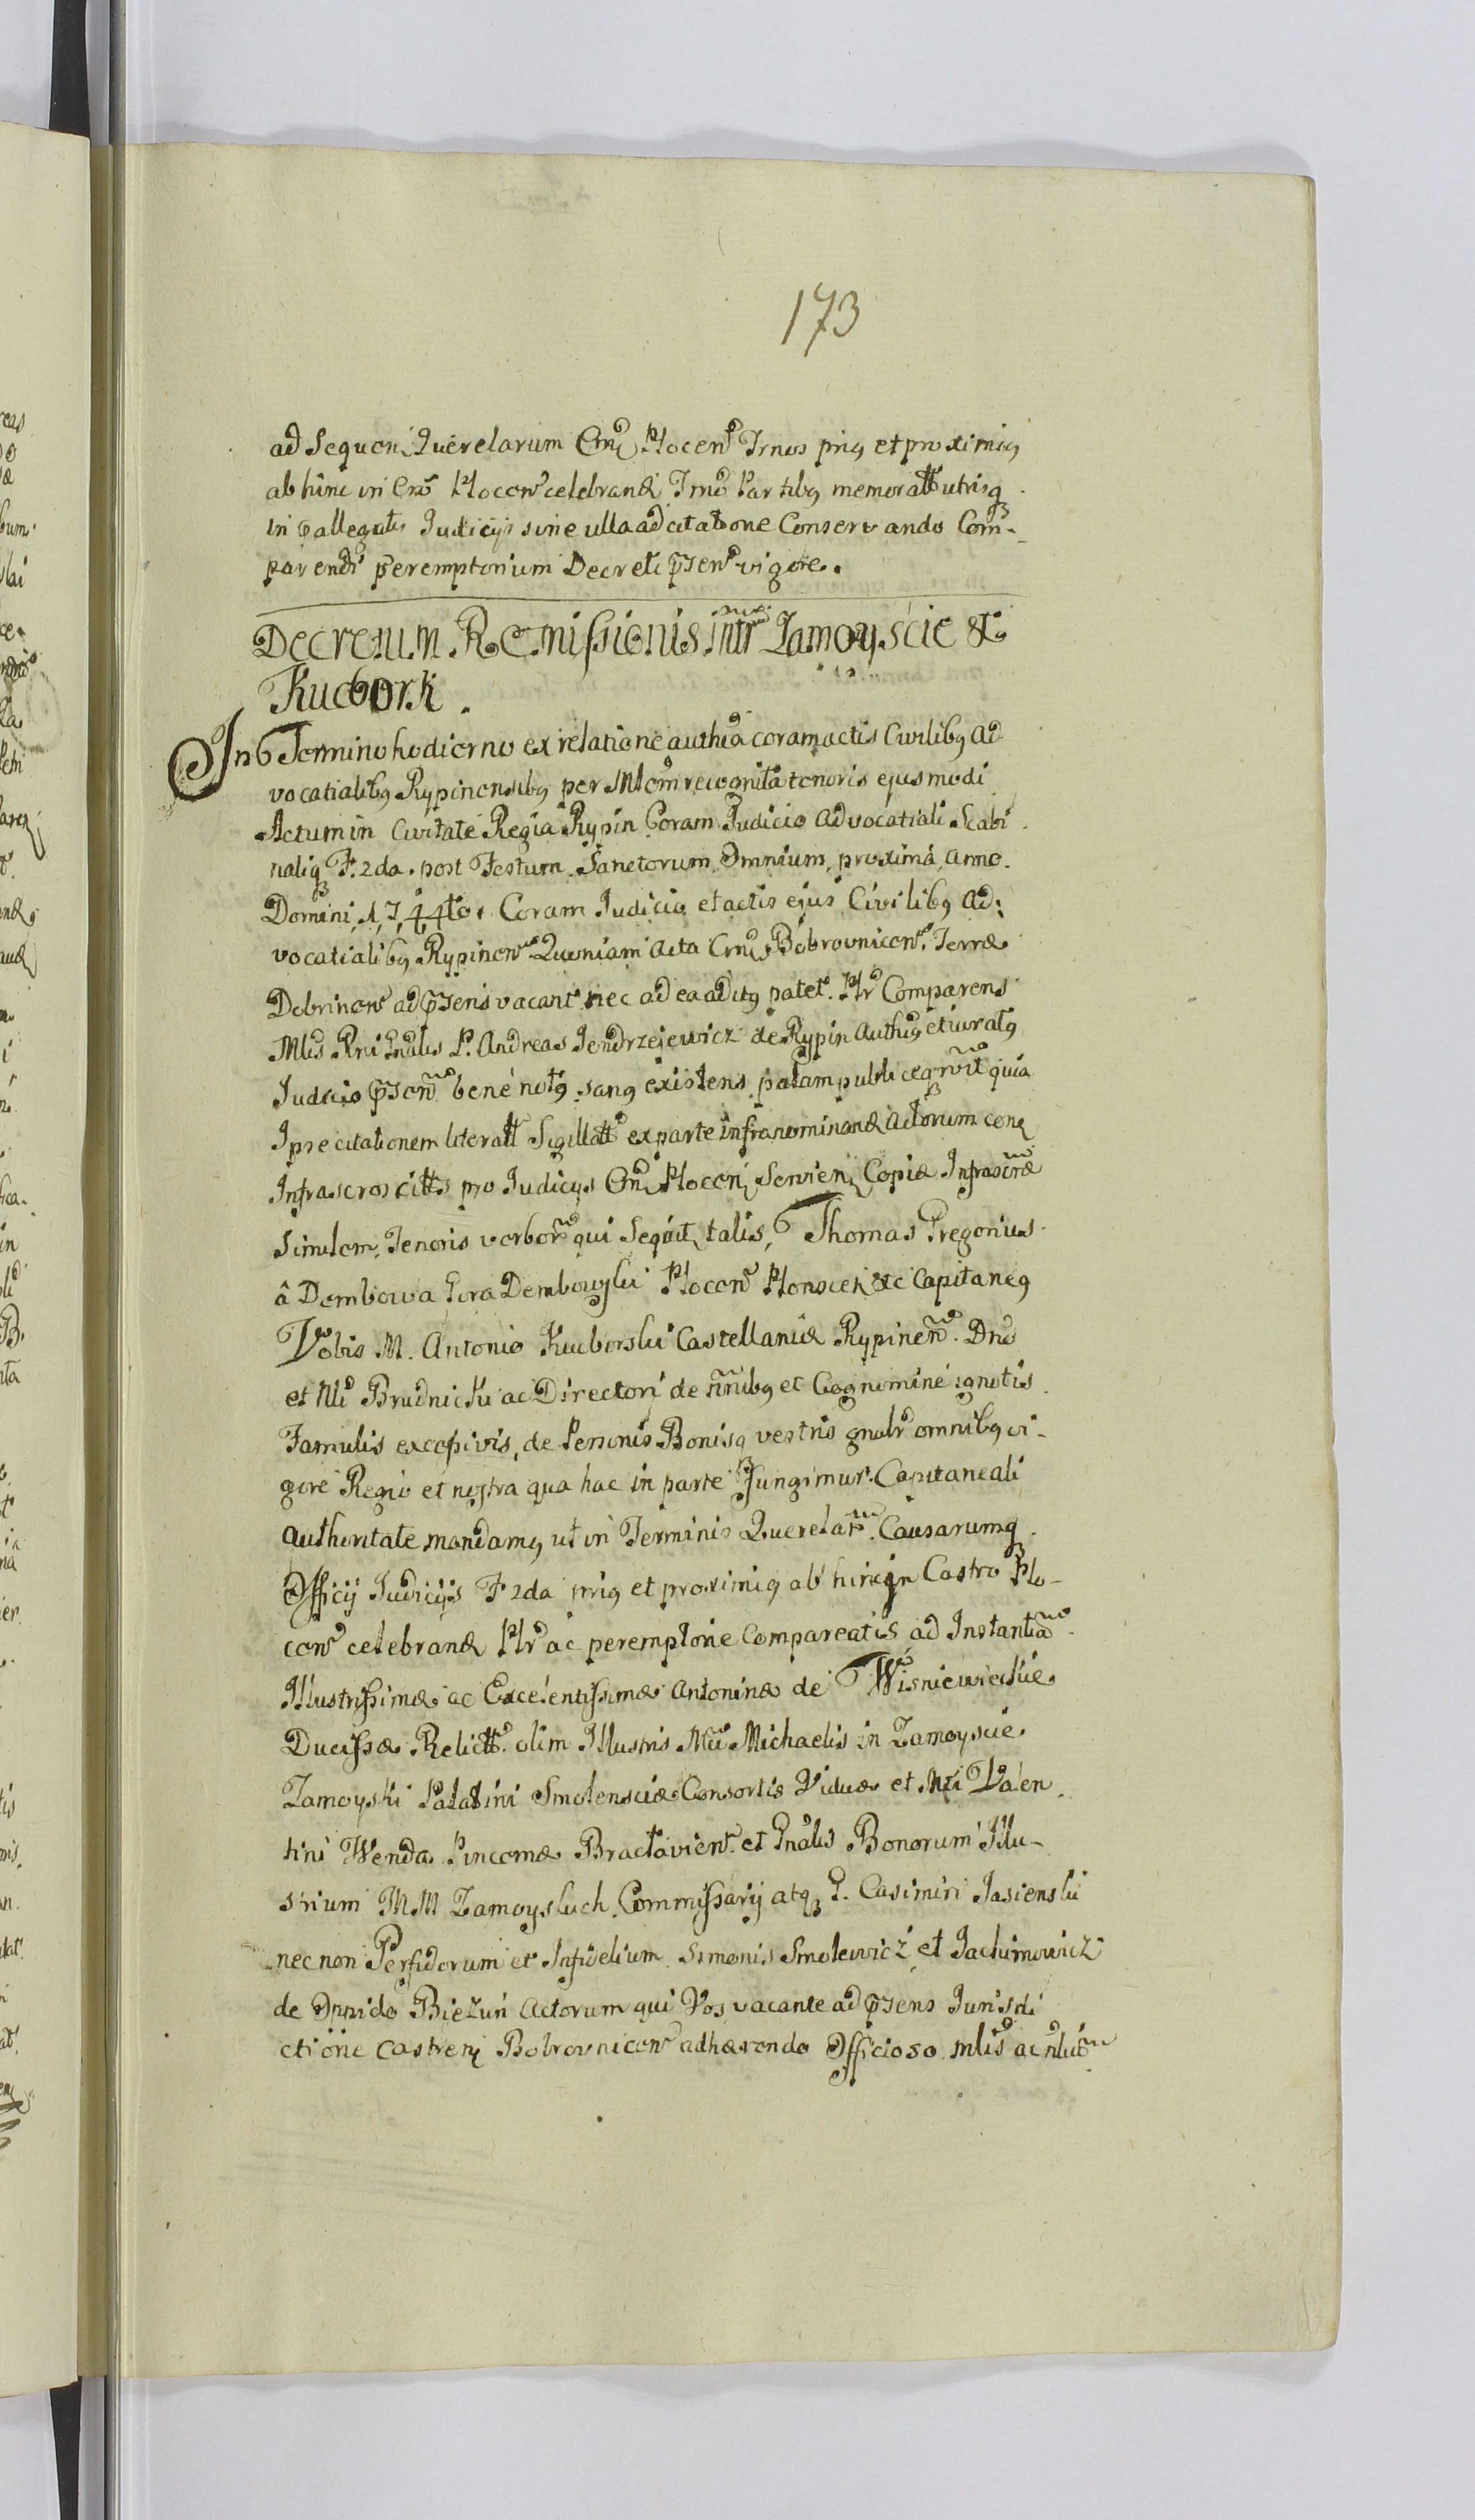 173
ad Sequen Querelarum Crn̄ Plocen Trnos prig et proximig
ab hinc in Cro Plocen celebrand Trmo Partibg memoratt utrisq
in pallegatis Judicijs sine ulla adcitatione Conservando Com-
parendi peremptorium Decreti prsen vigore.
Decretum Remissionis intr Zamoyscie &
Kucbork.
In Termino hodierno ex relatione authca coram actis Civilibg Ad
vocatialibg Rypinensibg per Mlem recognita tenoris ejusmodi
Actum in Civitate Regia Rypin Coram Judicio Advocatiali Scabi
naliq F. 2da. post Festum Sanctorum Omnium proxima Anno
Domini 1744to. Coram Judicio et actis ejus Civilibg Ad:
vocatialibg Rypinen Quoniam Acta Crn Bobrovnicen Terræ
Dobrinen ad prsens vacant nec ad ea aditg patet. Plr Comparens
Mlis Rni Gnalis P. Andreas Jendrzejewicz de Rypin Authg et iuratg
Judicio prsen bene notg sang existens palam publiceq rvit quia
Ipse citationem literatt Sigillatt ex parte infranominand Actorum con
Infrascros cittos pro Judicijs Crn Plocen Servien Copiæ Infrascræ
Similem, Tenoris verbor qui Sequit talis, Thomas Gregorius
â Dembowa Gora Dembowski Plocen Plonscen &c Capitaneg
Vobis M. Antonio Kucborski Castellaniæ Rypinen. Dno
et Nli Brudnicki ac Directori de nnibg et Cognomine ignotis
Famulis excessivis, de Personis Bonisq vestris gnalr omnibg vi-
gore Regio et nostra qua hac in parte fungimur Capitaneali
Authoritate mandamg ut in Terminis Querelar Causarumq
Officij Judicijs F 2da prig et proximig ab hinc in Castro Plo-
cen celebrand Plr ac peremptorie Compareatis ad Instantia
Illustrissimæ ac Excelentissimæ Antoninæ de Wisniewieckie
Ducissæ Relictt olim Illustris Mci Michaelis in Zamoyscie
Zamoyski Palatini Smolensciæ Consortis Viduæ et Mci Valen
tini Wenda Pincernæ Braclavien et Gnalis Bonorum Illu-
strium M.M Zamoyskich Commissarij atq G. Casimiri Jasienski
nec non Perfidorum et Infidelium Simonis Smolewicz et Jachimowicz
de Oppido Bieżuń Actorum qui Vos vacante ad prsens Jurisdi
ctione Castren Bobrovnicen adhærendo Officioso mlis ac